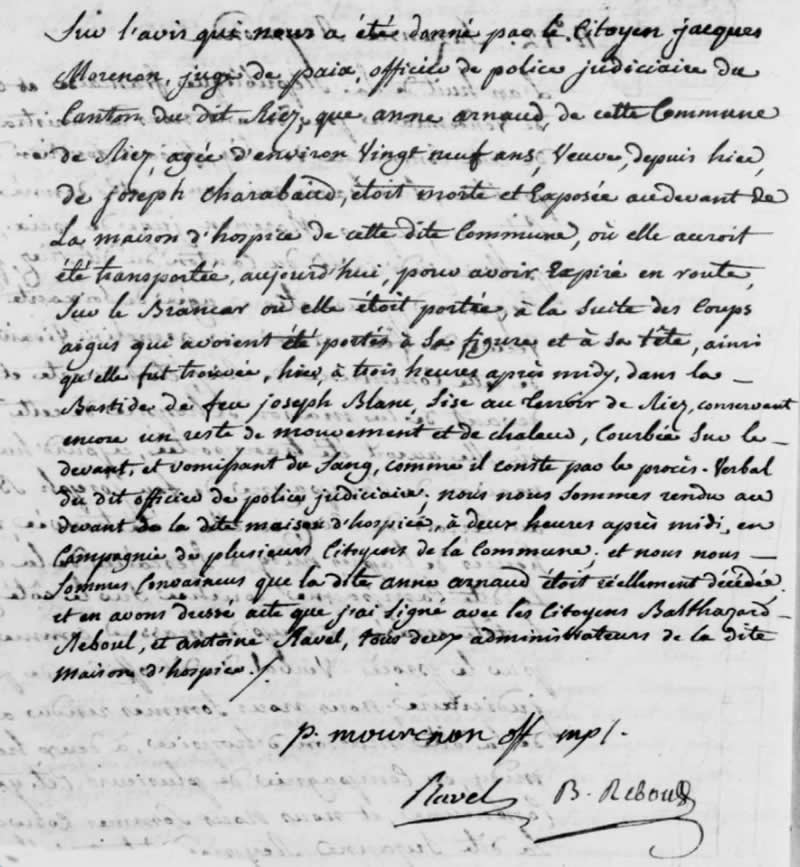 Sur l'avis qui nous a été donné par le Citoyen jacques
Morenon, juge de paix, officier de police judiciaire du
Canton du dit Riez, que anne arnaud, de cette Commune
de Riez, agée d'environ Vingt neuf ans, Veuve, depuis hier,
de joseph Charabaud, étoit morte et Exposée audevant de
La maison d'hospice de cette dite Commune, où elle auroit
été transportée, aujourd'hui, pour avoir Expiré en route,
Sur le Brancar où elle étoit portée, à la Suite des Coups
aigus qui avoient été portés à Sa figure et à sa tête, ainsi
qu'elle fut trouvée, hier, à trois heures après midy, dans la -
Bastide de feu joseph Blanc, Sise au terroir de Riez, conservant
encore un reste de mouvement et de chaleur, Courbée Sur le -
devant, et vomissant du Sang, comme il conste par le procès-Verbal
du dit officier de police judiciaire; nous nous Sommes rendu au
devant de la dite maison d'hospice, à deux heures après midi, en
Compagnie de plusieurs Citoyens de la Commune; et nous nous -
Sommes Convaincus que la dite anne arnaud étoit réellement décédée,
et en avons dressé acte que j'ai Signé avec les Citoyens Balthazard -
Reboul, et antoine Ravel, tous deux administrateurs de la dite
Maison d'hospice ./.
p. mourenon off mpl.
Ravel B. Reboul